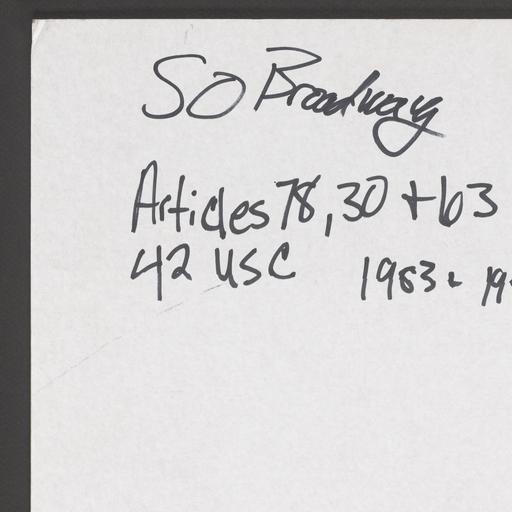 SO Broadway
Articles 78, 30 + 63
42 USC 1983 + 19